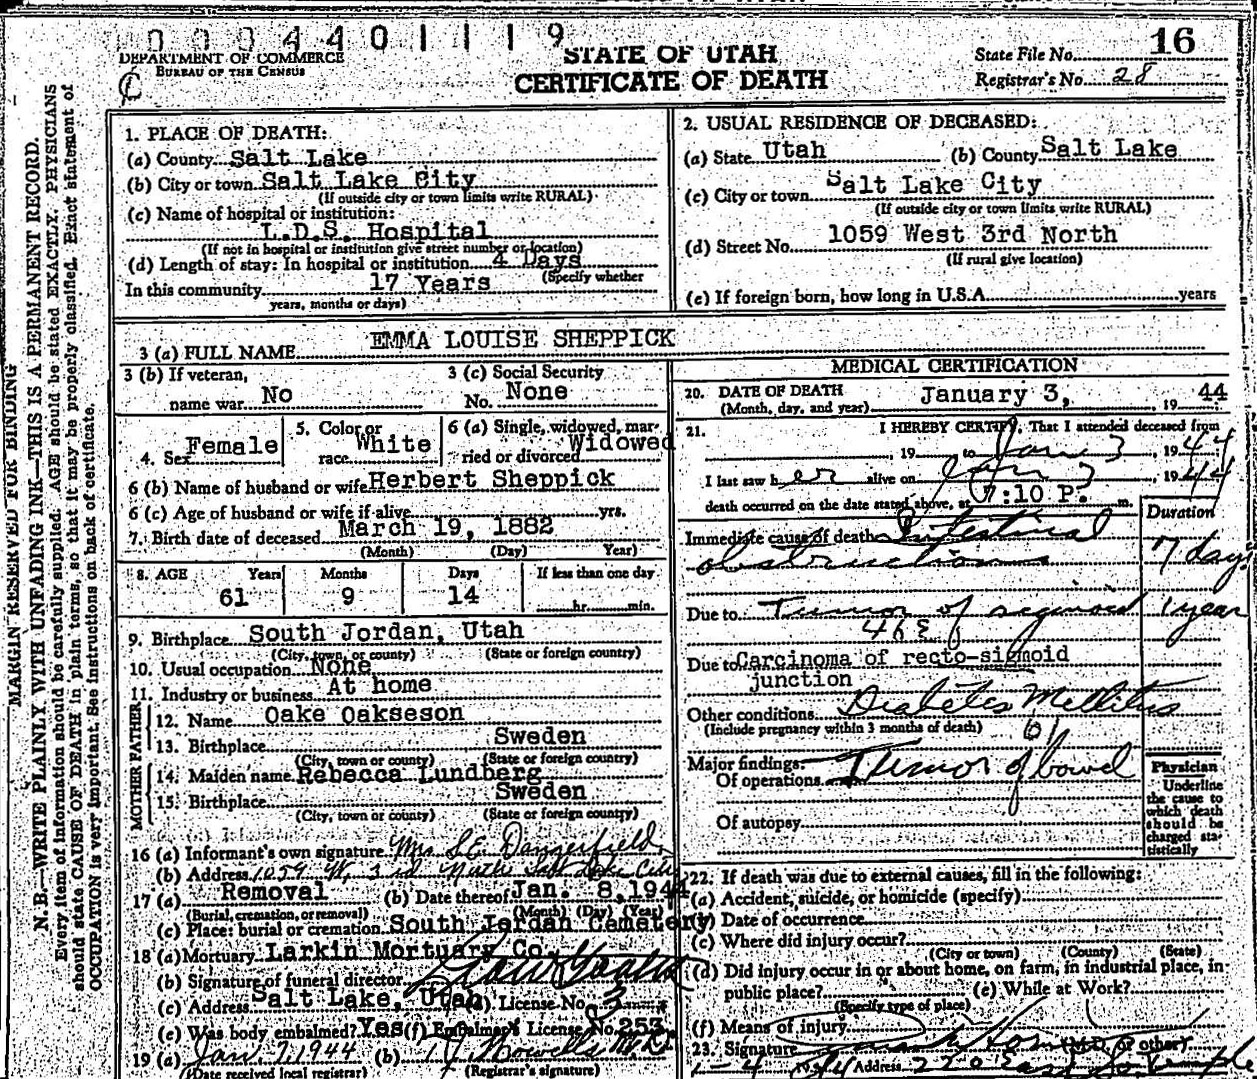 0 0 0 4 4 0 1 1 1 9
DEPARTMENT OF COMMERCE
BUREAU OF THE CENSUS
STATE OF UTAH
CERTIFICATE OF DEATH
State File No. 16
Registrar's No. 28
MARGIN RESERVED FOR BINDING
N. B.—WRITE PLAINLY, WITH UNFADING INK—THIS IS A PERMANENT RECORD.
Every item of information should be carefully supplied. AGE should be stated EXACTLY. PHYSICIANS
should state CAUSE OF DEATH in plain terms, so that it may be properly classified. Exact statement of
OCCUPATION is very important. See instructions on back of certificate.
1. PLACE OF DEATH:
(a) County Salt Lake
(b) City or town Salt Lake City
(If outside city or town limits write RURAL)
(c) Name of hospital or institution:
L.D.S. Hospital
(If not in hospital or institution give street number or location)
(d) Length of stay: In hospital or institution 4 Days
(Specify whether
In this community 17 Years
years, months or days)
2. USUAL RESIDENCE OF DECEASED:
(a) State Utah (b) County Salt Lake
(c) City or town Salt Lake City
(If outside city or town limits write RURAL)
(d) Street No. 1059 West 3rd North
(If rural give location)
(e) If foreign born, how long in U.S.A. years
3 (a) FULL NAME EMMA LOUISE SHEPPICK
3 (b) If veteran, 3 (c) Social Security
name war No No. None
4. Sex Female 5. Color or race White 6 (a) Single, widowed, married or divorced Widowed
6 (b) Name of husband or wife Herbert Sheppick
6 (c) Age of husband or wife if alive yrs.
7. Birth date of deceased March 19, 1882
(Month) (Day) Year)
8. AGE Years Months Days If less than one day
61 9 14 hr. min.
9. Birthplace South Jordan, Utah
(City, town, or county) (State or foreign country)
10. Usual occupation None
11. Industry or business At home
FATHER
12. Name Oake Oakseson
13. Birthplace Sweden
(City, town or county) (State or foreign country)
MOTHER
14. Maiden name Rebecca Lundberg
15. Birthplace Sweden
(City, town or county) (State or foreign country)
16 (a) Informant's own signature Mrs S.E. Dangerfield
(b) Address 1059 W. 3rd North Salt Lake City
17 (a) Removal (b) Date thereof Jan. 8, 1944
(Burial, cremation, or removal) (Month) (Day) (Year)
(c) Place: burial or cremation South Jordan Cemetery
18 (a) Mortuary Larkin Mortuary Co.
(b) Signature of funeral director
(c) Address Salt Lake, Utah (d) License No. 3
(e) Was body embalmed? Yes (f) Embalmer's License No. 253
19 (a) Jan 7 1944 (b)
(Date received local registrar) (Registrar's signature)
MEDICAL CERTIFICATION
20. DATE OF DEATH January 3, 19 44
(Month, day, and year)
21. I HEREBY CERTIFY, That I attended deceased from
19 to Jan 3, 1944
I last saw her alive on Jan 3, 1944
death occurred on the date stated above, at 7:10 P. m.
Duration
Immediate cause of death Intestinal
obstruction 7 days
Due to Tumor of sigmoid 1 year
Due to Carcinoma of recto-sigmoid
junction
Other conditions Diabetes Mellitus
(Include pregnancy within 3 months of death) 61
Major findings:
Of operations Tumor of bowel
Of autopsy
Physician
Underline
the cause to
which death
should be
charged sta-
tistically
22. If death was due to external causes, fill in the following:
(a) Accident, suicide, or homicide (specify)
(b) Date of occurrence
(c) Where did injury occur?
(City or town) (County) (State)
(d) Did injury occur in or about home, on farm, in industrial place, in
public place? (e) While at Work?
(Specify type of place)
(f) Means of injury
23. Signature (M.D. or other)
Address